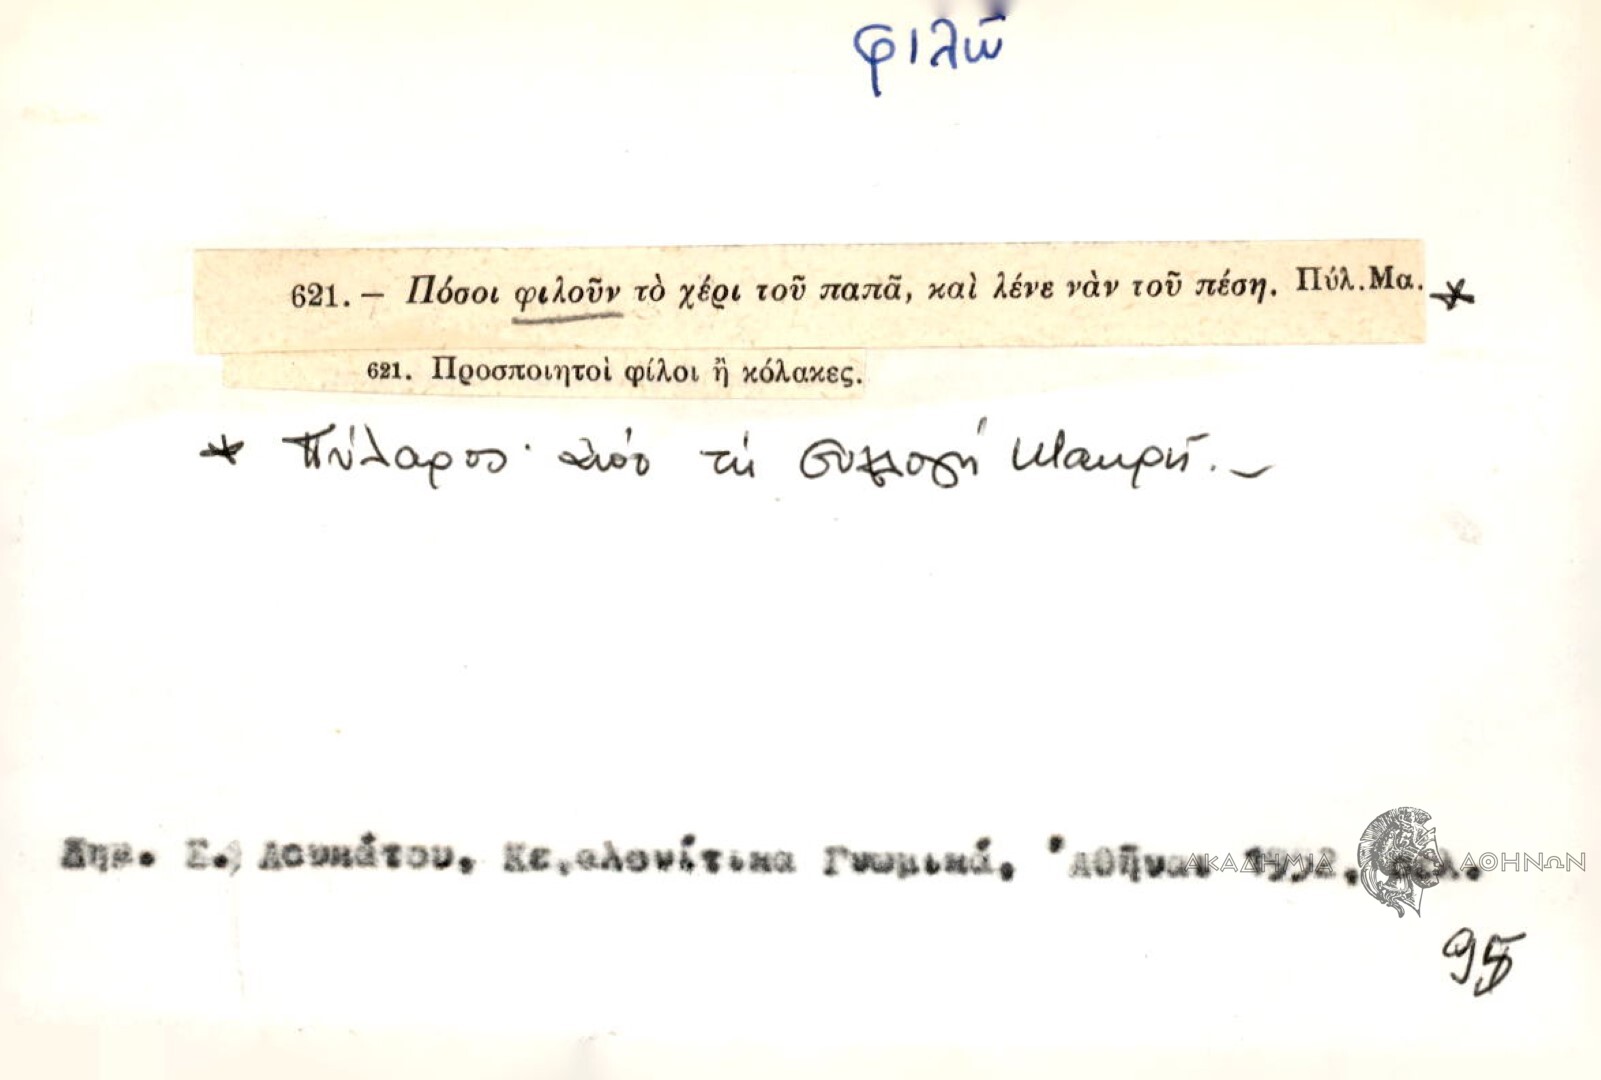 φιλῶ
621. — Πόσοι φιλοῦν τὸ χέρι τοῦ παπᾶ, καὶ λένε νὰν τοῦ πέση. Πύλ.Μα. *
621. Προσποιητοὶ φίλοι ἢ κόλακες.
* Πύλαρος· ἀπό τή συλλογή Μακρῆ.
Δημ. Σ. Λουκάτου, Κεφαλονίτικα Γνωμικά, Ἀθῆναι 1952, σελ.
ΑΚΑΔΗΜΙΑ ΑΘΗΝΩΝ
95